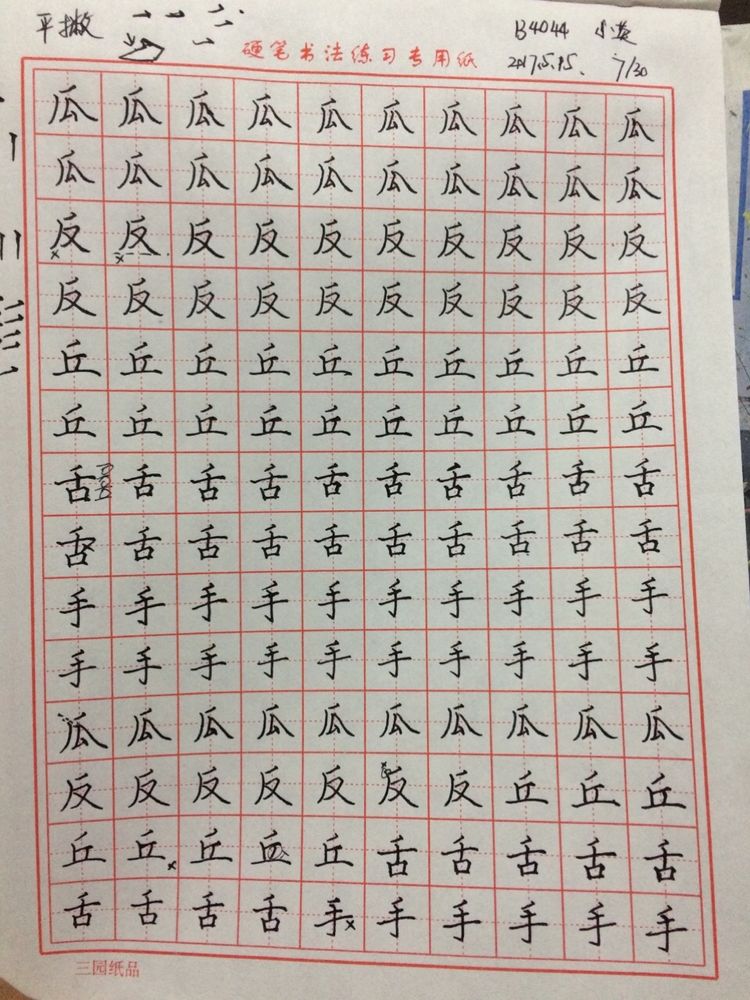 平撇
B4044 小莲
硬笔书法练习专用纸
2017.5.15. 7/30
瓜瓜瓜瓜瓜瓜瓜瓜瓜瓜
瓜瓜瓜瓜瓜瓜瓜瓜瓜瓜
反反反反反反反反反反
反反反反反反反反反反
丘丘丘丘丘丘丘丘丘丘
丘丘丘丘丘丘丘丘丘丘
舌舌舌舌舌舌舌舌舌舌
舌舌舌舌舌舌舌舌舌舌
手手手手手手手手手手
手手手手手手手手手手
瓜瓜瓜瓜瓜瓜瓜瓜瓜瓜
反反反反反反反丘丘丘
丘丘丘丘丘舌舌舌舌舌
舌舌舌舌手手手手手手
三园纸品